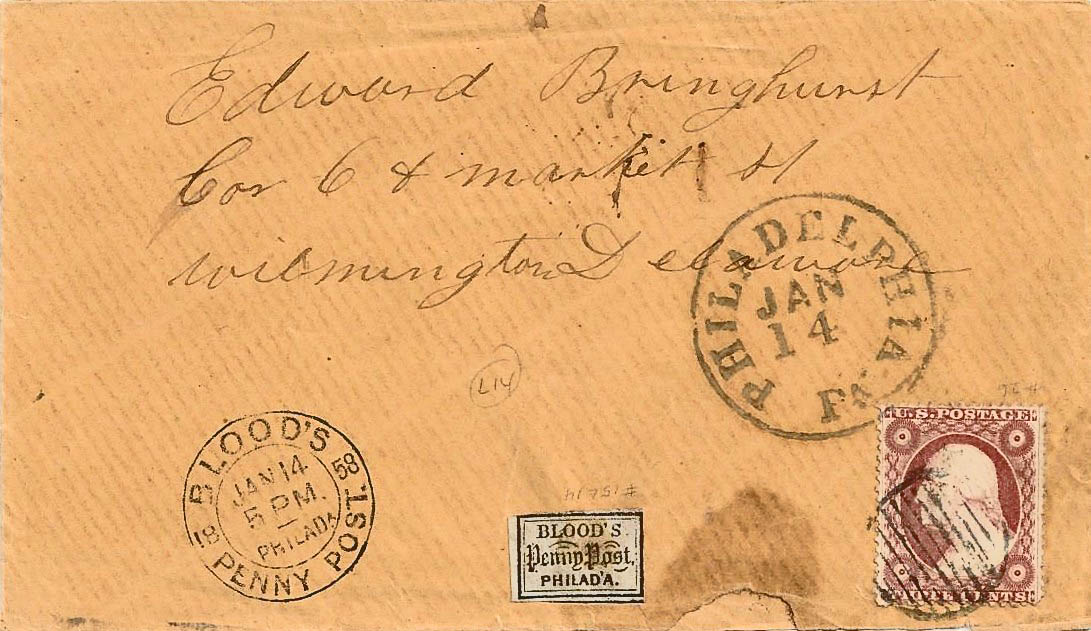 Edward Bringhurst
Cor 6 & market st
Wilmington Delaware
PHILADELPHIA Pa.
JAN
14
L14
BLOOD'S PENNY POST.
18 58
JAN 14
5 PM.
PHILADA
#15L14
BLOOD'S
Penny Post,
PHILAD'A.
#26
U.S. POSTAGE
THREE CENTS